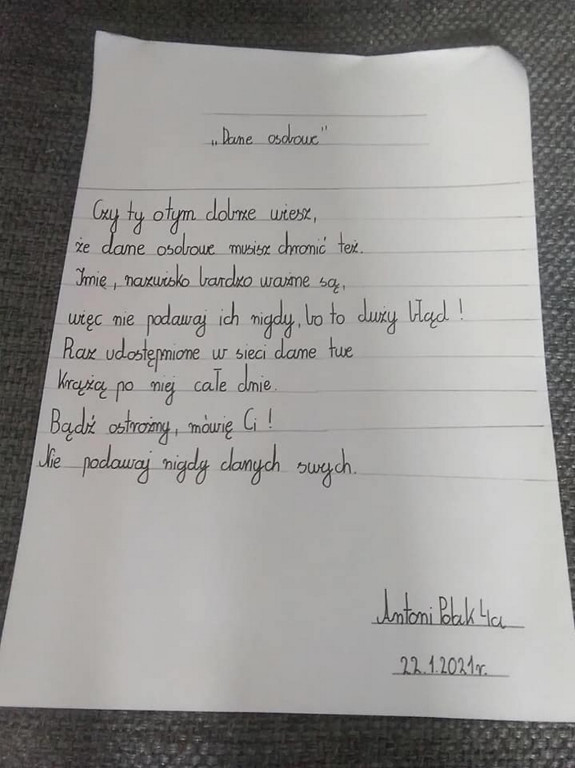 „Dane osobowe"
Czy ty otym dobrze wiesz,
że dane osobowe musisz chronić też.
Imię, nazwisko bardzo ważne są,
więc nie podawaj ich nigdy, bo to duży błąd!
Raz udostępnione w sieci dane twe
Krążą po niej całe dnie.
Bądź ostrożny, mówię Ci!
Nie podawaj nigdy danych swych.
Antoni Polak 4a
22.1.2021r.